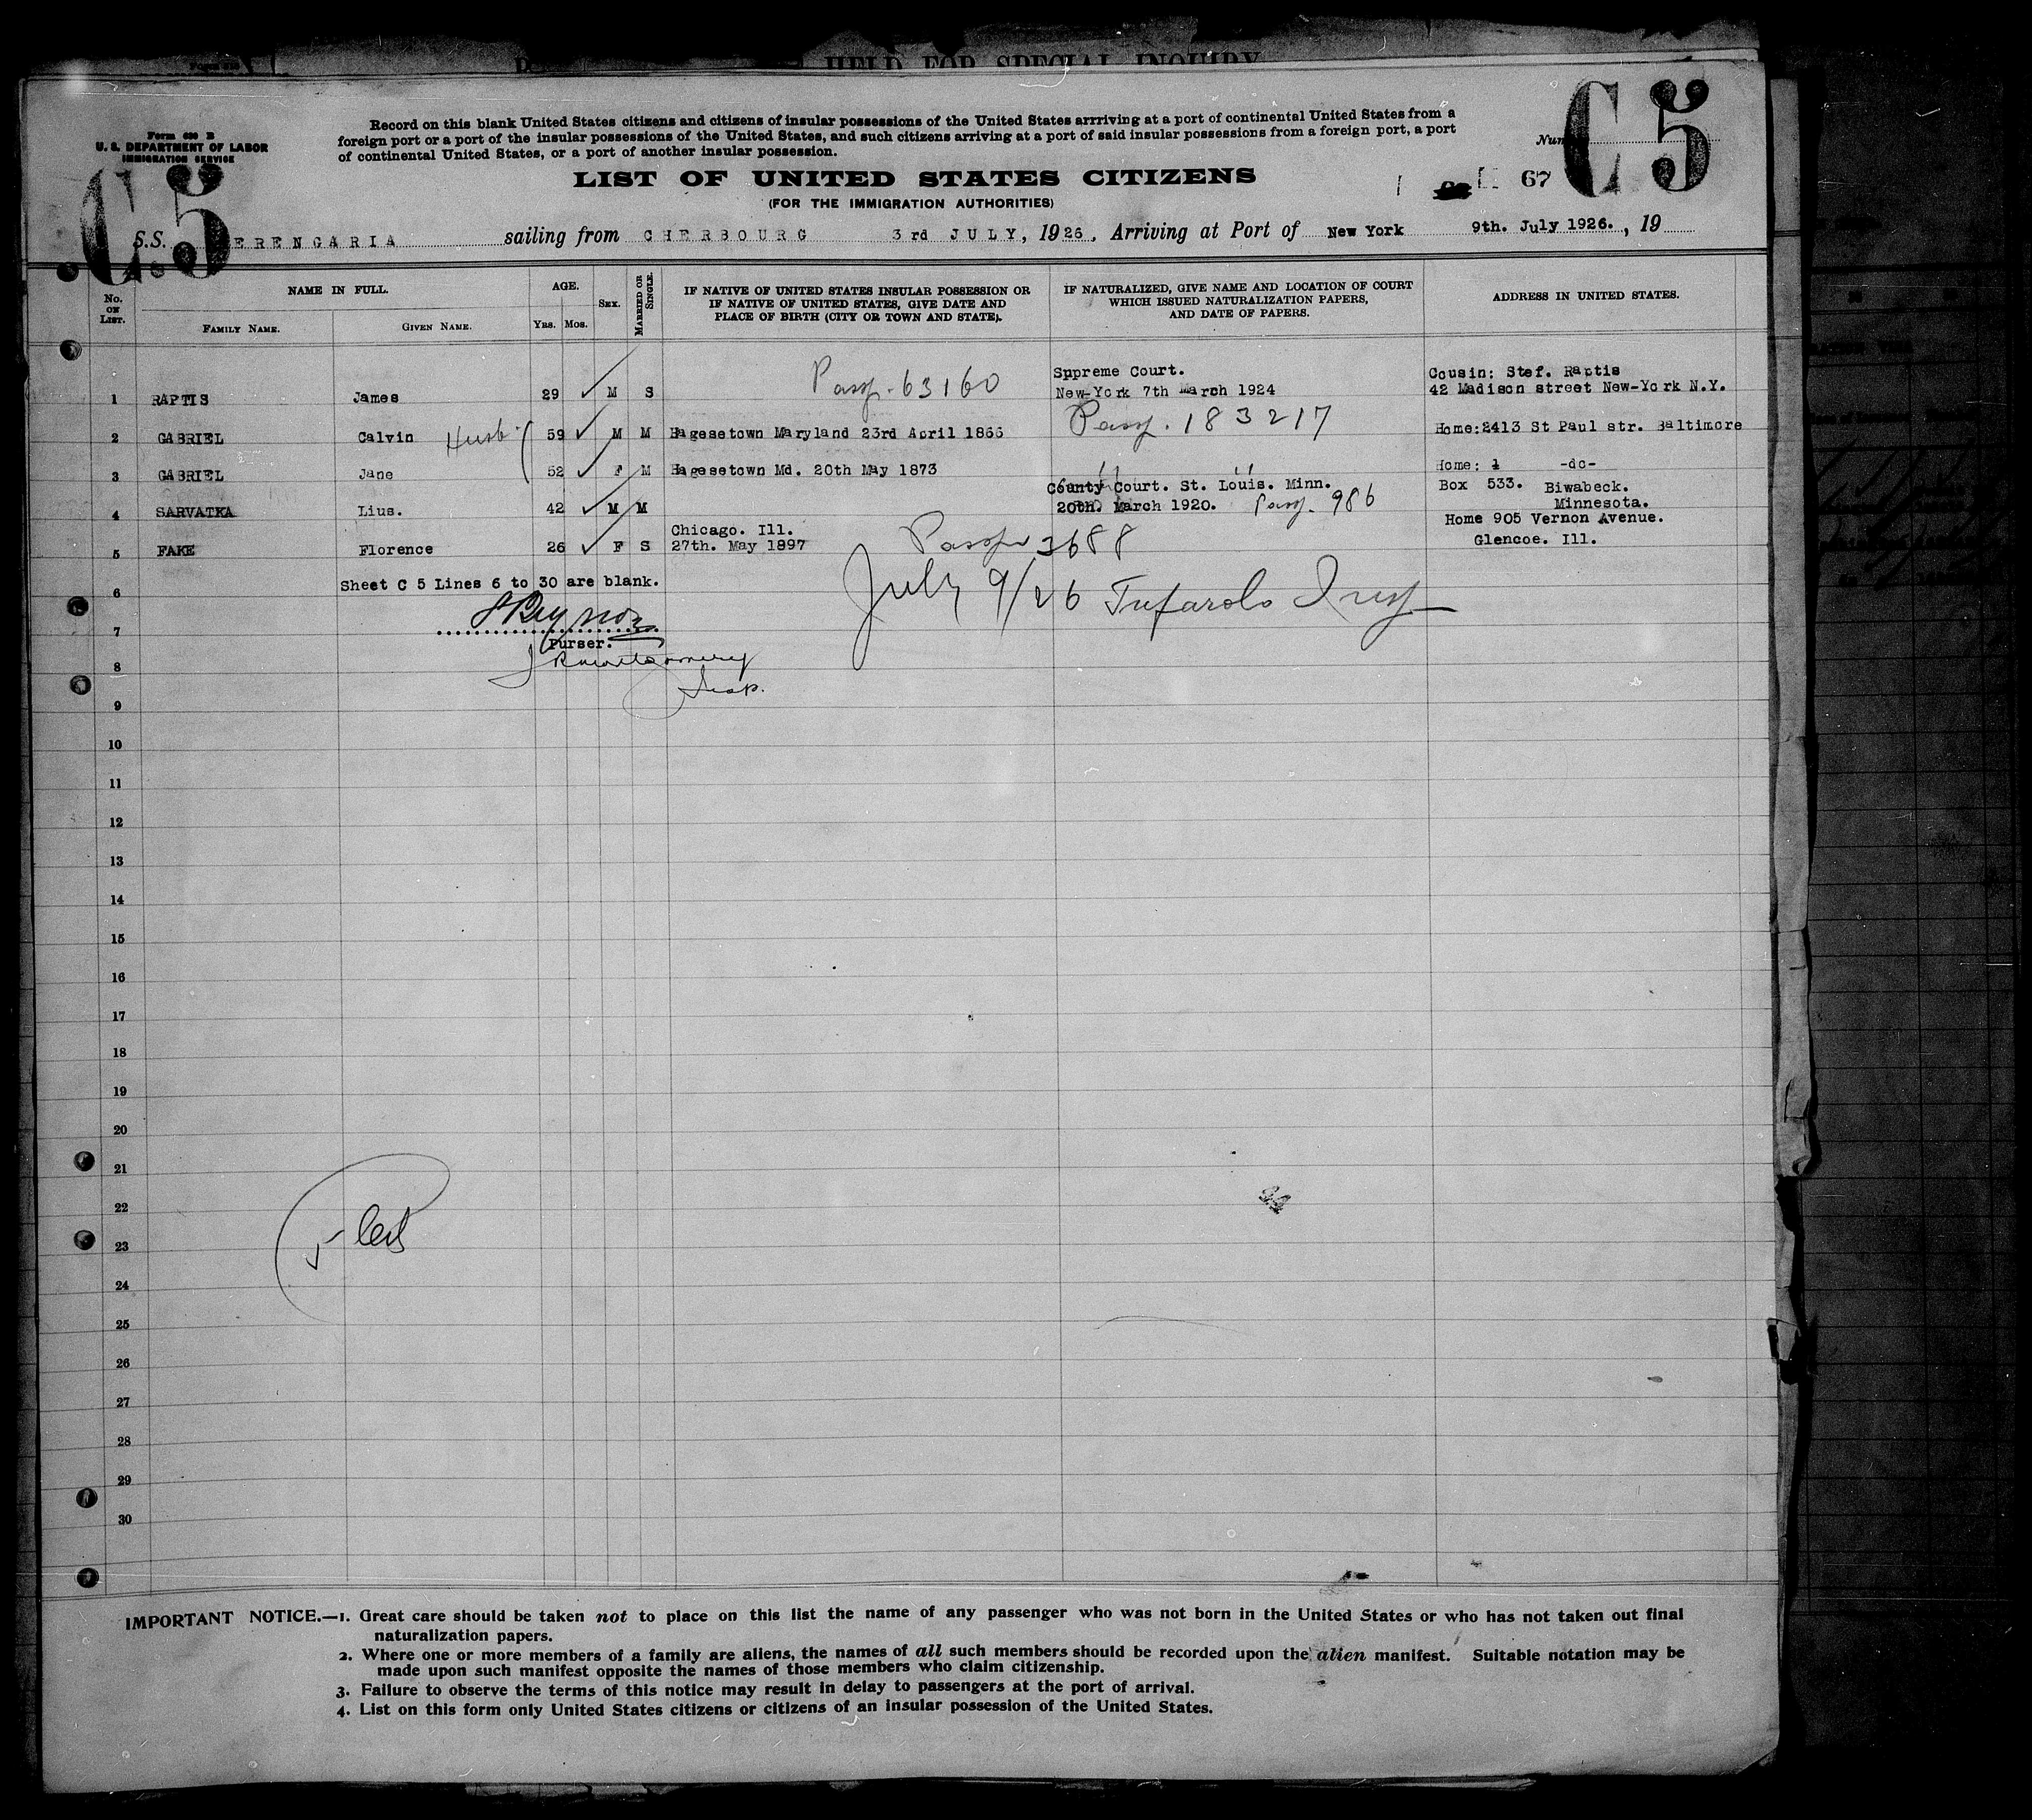 HELD FOR SPECIAL INQUIRY
Form 630 B
U. S. DEPARTMENT OF LABOR
IMMIGRATION SERVICE
C 5
Record on this blank United States citizens and citizens of insular possessions of the United States arrriving at a port of continental United States from a
foreign port or a port of the insular possessions of the United States, and such citizens arriving at a port of said insular possessions from a foreign port, a port
of continental United States, or a port of another insular possession.
C 5
LIST OF UNITED STATES CITIZENS
67
(FOR THE IMMIGRATION AUTHORITIES)
S.S. ERENGARIA sailing from CHERBOURG 3rd JULY, 1926, Arriving at Port of New York 9th. July 1926., 19
No. ON LIST.
NAME IN FULL.
FAMILY NAME.
GIVEN NAME.
AGE.
YRS. MOS.
SEX.
MARRIED OR SINGLE.
IF NATIVE OF UNITED STATES INSULAR POSSESSION OR
IF NATIVE OF UNITED STATES, GIVE DATE AND
PLACE OF BIRTH (CITY OR TOWN AND STATE).
IF NATURALIZED, GIVE NAME AND LOCATION OF COURT
WHICH ISSUED NATURALIZATION PAPERS,
AND DATE OF PAPERS.
ADDRESS IN UNITED STATES.
Supreme Court. Cousin: Stef. Raptis
1 RAPTIS James 29 ✓ M S Passp. 63160 New-York 7th March 1924 42 Madison street New-York N.Y.
2 GABRIEL Calvin Husb. 59 ✓ M M Hagesetown Maryland 23rd April 1866 Passp. 183217 Home:2413 St Paul str. Baltimore
3 GABRIEL Jane 52 ✓ F M Hagesetown Md. 20th May 1873 " " Home: -do-
County Court. St. Louis. Minn. Box 533. Biwabeck.
4 SARVATKA Lius. 42 ✓ M M 20th. March 1920. Passp. 986 Minnesota.
Chicago. Ill. Home 905 Vernon Avenue.
5 FAKE Florence 26 ✓ F S 27th. May 1897 Passp 3688 Glencoe. Ill.
Sheet C 5 Lines 6 to 30 are blank.
6
July 9/26 Tufarolo Insp
7
Purser.
8
Insp.
9
10
11
12
13
14
15
16
17
18
19
20
21
22
23
24
25
26
27
28
29
30
IMPORTANT NOTICE.—1. Great care should be taken not to place on this list the name of any passenger who was not born in the United States or who has not taken out final
naturalization papers.
2. Where one or more members of a family are aliens, the names of all such members should be recorded upon the alien manifest. Suitable notation may be
made upon such manifest opposite the names of those members who claim citizenship.
3. Failure to observe the terms of this notice may result in delay to passengers at the port of arrival.
4. List on this form only United States citizens or citizens of an insular possession of the United States.